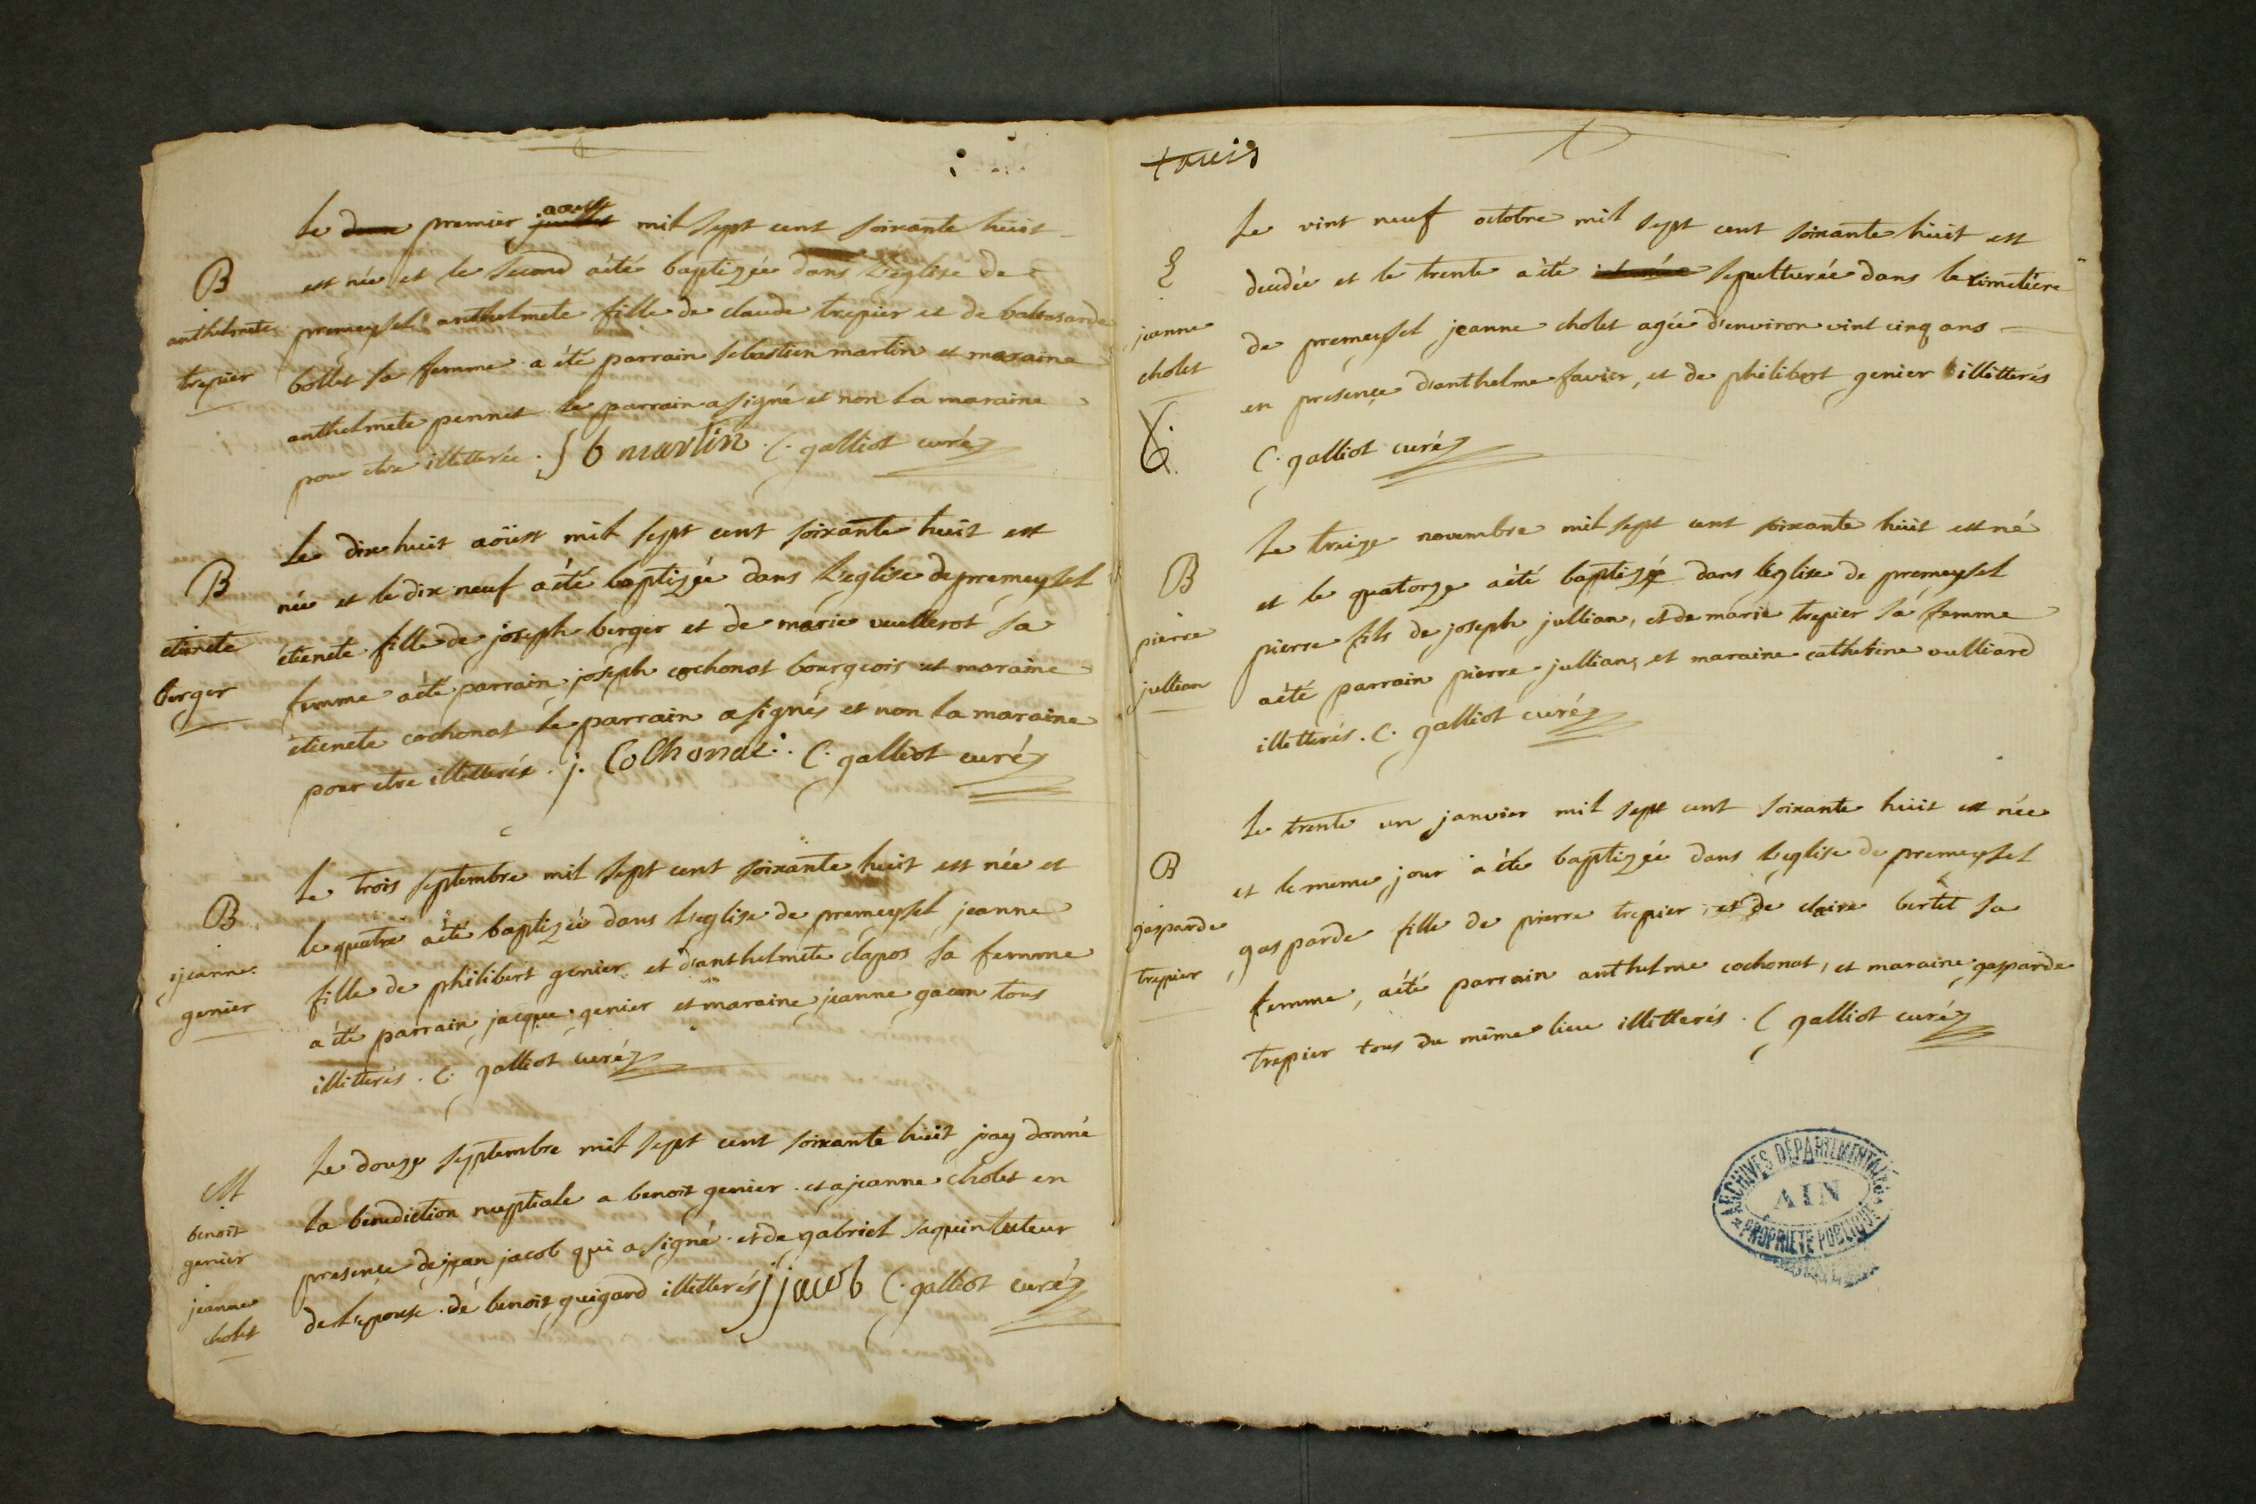 le premier aoust mil sept cent soixante huit
B
est née et le second a été baptizée dans l'eglise de
anthelmete
premeysel anthelmete fille de claude trepier et de baltasarde
trepier
bollet sa femme a été parrain sebastien martin et maraine
anthelmete pennet le parrain a signé et non la maraine
pour etre illetterée. S b martin. C. galliot curé
le dix huit aoüst mil sept cent soixante huit est
B
née et le dix neuf a été baptizée dans l'eglise de premeysel
etienete
etienete fille de joseph berger et de marie vuillerot sa
berger
femme a été parrain joseph cochonat bourgeois et maraine
etienete cochonat le parrain a signés et non la maraine
pour etre illetterée. j. Cochonat. C. galliot curé
le trois septembre mil sept cent soixante huit est née et
B
le quatre a été baptizée dans l'eglise de premeysel jeanne
jeanne
fille de philibert genier et d'anthelmete clapos sa femme
genier
a été parrain jacque genier et maraine jeanne gacon tous
illetterés. C. galliot curé
Le douze septembre mil sept cent soixante huit j'ay donné
M
la benediction nuptiale a benoit genier et a jeanne cholet en
benoit
genier
presence de jean jacob qui a signé et de gabriel saquin tuteur
jeanne
cholet
de l'epouse de benoit guigard illetterés j jacob C. galliot curé
trois
Le vint neuf octobre mil sept cent soixante huit est
decedée et le trente a été sepulturée dans le cimetiere
jeanne
de premeysel jeanne cholet agée d'environ vint cinq ans
cholet
en presence d'anthelme favier, et de philibert genier illetterés
6.
C. galliot curé
Le treize novembre mil sept cent soixante huit est né
B
et le quatorze a été baptizé dans l'eglise de premeysel
pierre
pierre fils de joseph jullian, et de marie trepier sa femme
jullian
a été parrain pierre jullian, et maraine catherine vulliard
illetterés. C. galliot curé
Le trente un janvier mil sept cent soixante huit est née
B
et le meme jour a été baptizée dans l'eglise de premeysel
gasparde
gasparde fille de pierre trepier, et de claire bertet sa
trepier
femme, a été parrain anthelme cochonat, et maraine gasparde
trepier tous du même lieu illetterés. C galliot curé
ARCHIVES DÉPARTEMENTALES
AIN
PROPRIÉTÉ PUBLIQUE